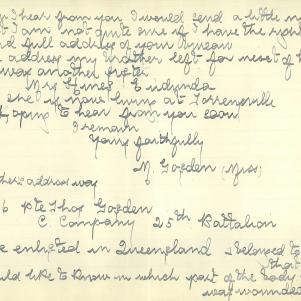 I hear from you I would send a little m
t I am not quite sure if I have the right
d full address of your Bureau
address my brother left for most of h
was another sister
Mrs Agnes
she is now living at
oping to hear from you soon
I remain
Yours faithfully
M. Gorden (Miss)
address was
6 Pte Thos Gorden
C. Company 25th Battalion
e enlisted in Queensland & belonged to
that
uld like to know in which part of the body
was wounded